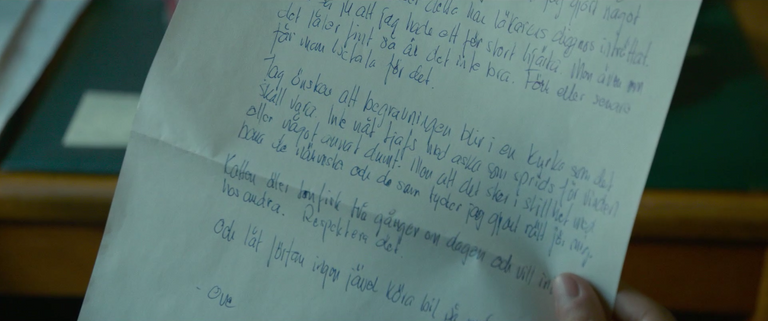 jag gjort något
detta har läkarens dagens inträffat.
att jag hade ett för stort hjärta. Men även om
det låter fint så är det inte bra. Förr eller senare
får man betala för det.
Jag önskar att begravningen blir i en kyrka som det
skall vara. Inte nåt tjafs med aska som sprids för vinden
eller något annat dumt. Men att det sker i stillhet med
bara de närmaste och de som tycker jag gjort rätt för mig.
Katten äter tonfisk två gånger om dagen och vill inte
hos andra. Respektera det.
Och låt förfan ingen jävel köra bil
- Ove